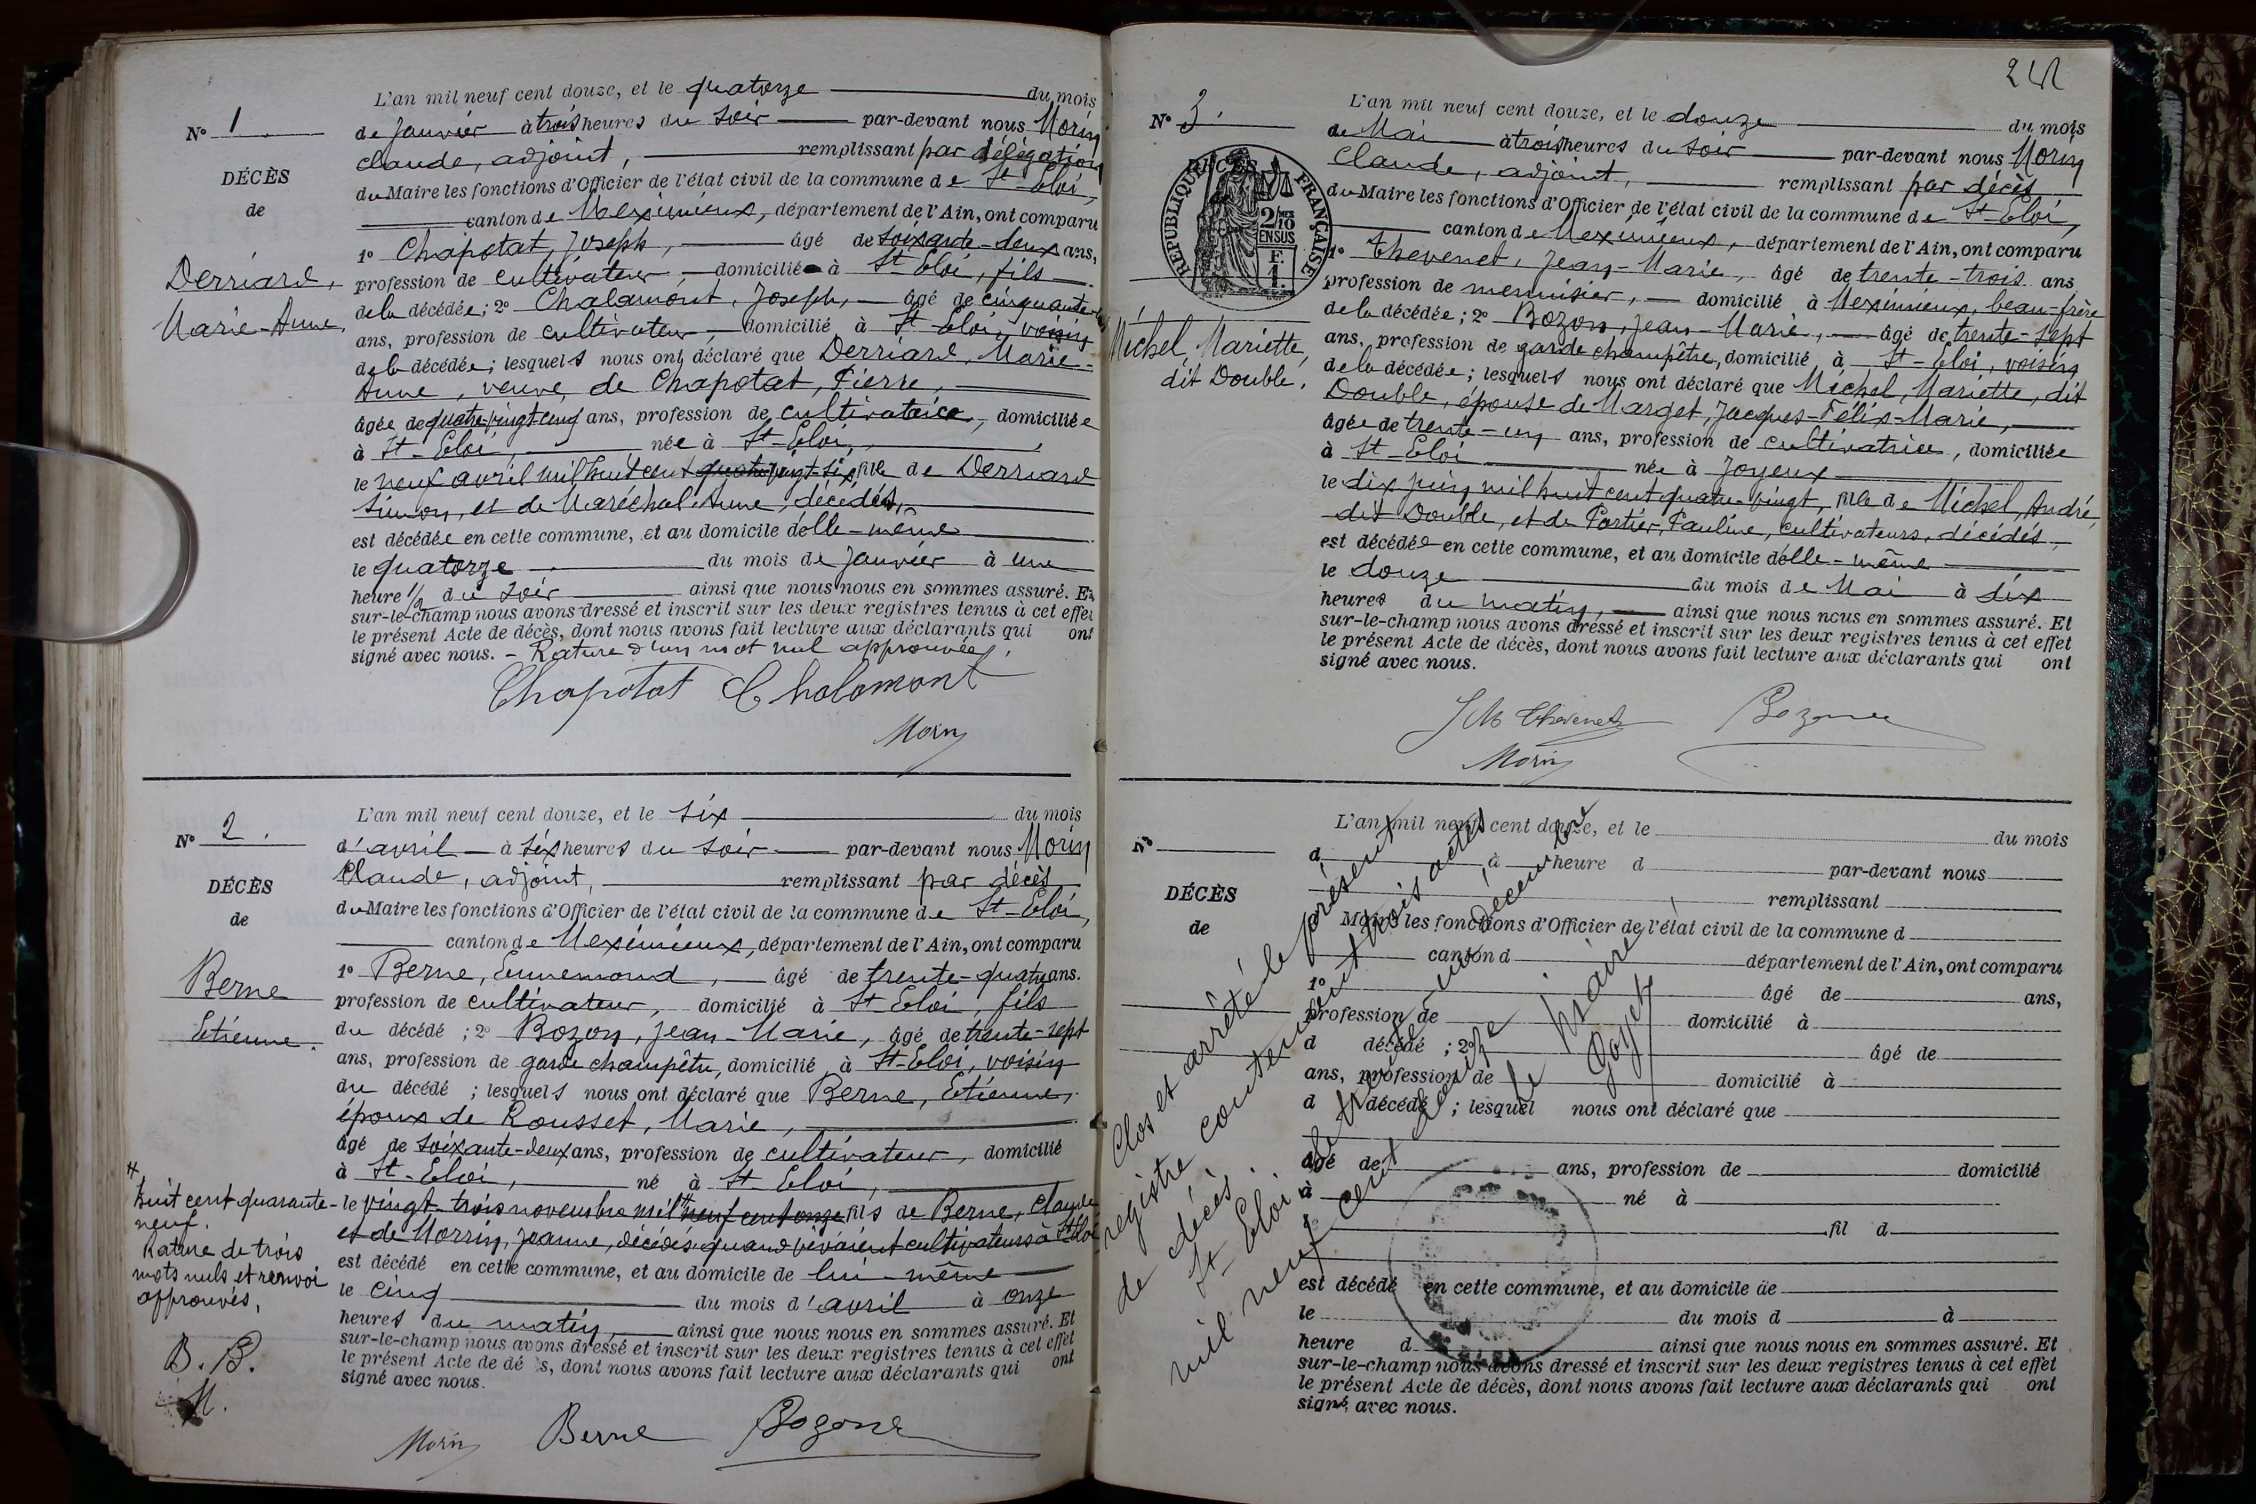 N° 1
DÉCÈS
de
Derriard,
Marie-Anne.
L'an mil neuf cent douze, et le quatorze du mois
de Janvier à trois heures du soir par-devant nous Morin
Claude, adjoint, remplissant par délégation
du Maire les fonctions d'Officier de l'état civil de la commune de St-Eloi,
canton de Meximieux, département de l'Ain, ont comparu
1° Chapotat, Joseph, âgé de soixante-deux ans,
profession de cultivateur domicilié à St Eloi, fils
de la décédée; 2° Chalamont, Joseph, âgé de cinquante-
ans, profession de cultivateur, domicilié à St-Eloi, voisin
de la décédée; lesquels nous ont déclaré que Derriard, Marie-
Anne, veuve de Chapotat, Pierre,
âgée de quatre-vingt-cinq ans, profession de cultivatrice, domiciliée
à St-Eloi, née à St-Eloi,
le neuf avril mil huit cent quatre vingt-six, fille de Derriard
Simon, et de Maréchal Anne, décédés,
est décédée en cette commune, et au domicile d'elle-même
le quatorze du mois de Janvier à une
heure 1/2 du soir ainsi que nous nous en sommes assuré. Et
sur-le-champ nous avons dressé et inscrit sur les deux registres tenus à cet effet
le présent Acte de décès, dont nous avons fait lecture aux déclarants qui ont
signé avec nous. - Rature d'un mot nul approuvée.
Chapotat Chalamont
Morin
N° 2.
DÉCÈS
de
Berne
Etienne.
L'an mil neuf cent douze, et le six du mois
d'avril à six heures du soir par-devant nous Morin
Claude, adjoint, remplissant par décès
du Maire les fonctions d'Officier de l'état civil de la commune de St-Eloi,
canton de Meximieux, département de l'Ain, ont comparu
1° Berne, Ennemond, âgé de trente-quatre ans.
profession de cultivateur, domicilié à St Eloi, fils
du décédé ; 2° Bozon, Jean-Marie, âgé de trente-sept
ans, profession de garde champêtre, domicilié à St-Eloi, voisin
du décédé ; lesquels nous ont déclaré que Berne, Etienne,
époux de Rousset, Marie,
âgé de soixante-deux ans, profession de cultivateur, domicilié
à St-Eloi, né à St-Eloi,
le vingt-trois novembre mil neuf cent onze fils de Berne, Claude
et de Morrin, Jeanne, décédés quand vivaient cultivateurs à St Eloi
est décédé en cette commune, et au domicile de lui-même
le cinq du mois d'avril à onze
heures du matin, ainsi que nous nous en sommes assuré. Et
sur-le-champ nous avons dressé et inscrit sur les deux registres tenus à cet effet
le présent Acte de dé s, dont nous avons fait lecture aux déclarants qui ont
signé avec nous.
huit cent quarante-
neuf.
Rature de trois
mots nuls et renvoi
approuvés,
B. B.
M.
Morin Berne Bozonne
N° 3.
REPUBLIQUE FRANÇAISE
2/10 EN SUS
F. 1.
Michel, Mariette,
dit Double.
L'an mil neuf cent douze, et le douze du mois
de Mai à trois heures du soir par-devant nous Morin
Claude, adjoint, remplissant par décès
du Maire les fonctions d'Officier de l'état civil de la commune de St-Eloi,
canton de Meximieux, département de l'Ain, ont comparu
1° Thevenet, Jean-Marie, âgé de trente-trois ans
profession de menuisier, domicilié à Meximieux, beau-frère
de la décédée; 2° Bozon, Jean-Marie, âgé de trente-sept
ans, profession de garde champêtre, domicilié à St-Eloi, voisin
de la décédée; lesquels nous ont déclaré que Michel, Mariette, dit
Double, épouse de Marget, Jacques-Félix-Marie,
âgée de trente-un ans, profession de cultivatrice, domiciliée
à St-Eloi née à Joyeux
le dix juin mil huit cent quatre-vingt, fille de Michel, André,
dit Double, et de Portier, Pauline, cultivateurs, décédés,
est décédée en cette commune, et au domicile d'elle-même
le douze du mois de Mai à dix
heures du matin, ainsi que nous nous en sommes assuré. Et
sur-le-champ nous avons dressé et inscrit sur les deux registres tenus à cet effet
le présent Acte de décès, dont nous avons fait lecture aux déclarants qui ont
signé avec nous.
JM Thevenet Bozonne
Morin
N°
DÉCÈS
de
L'an mil neuf cent douze, et le du mois
d à heure d par-devant nous
remplissant
Maire les fonctions d'Officier de l'état civil de la commune d
canton d département de l'Ain, ont comparu
1° âgé de ans,
profession de domicilié à
d décédé ; 2° âgé de
ans, profession de domicilié à
d décédé ; lesquel nous ont déclaré que
âgé de ans, profession de domicilié
à né à
l fil d
est décédé en cette commune, et au domicile de
le du mois d à
heure d ainsi que nous nous en sommes assuré. Et
sur-le-champ nous avons dressé et inscrit sur les deux registres tenus à cet effet
le présent Acte de décès, dont nous avons fait lecture aux déclarants qui ont
signé avec nous.
Clos et arrêté le présent
registre contenant trois actes
de décès.
St-Eloi le trente-un décembre
mil neuf cent douze
le Maire
Goyet